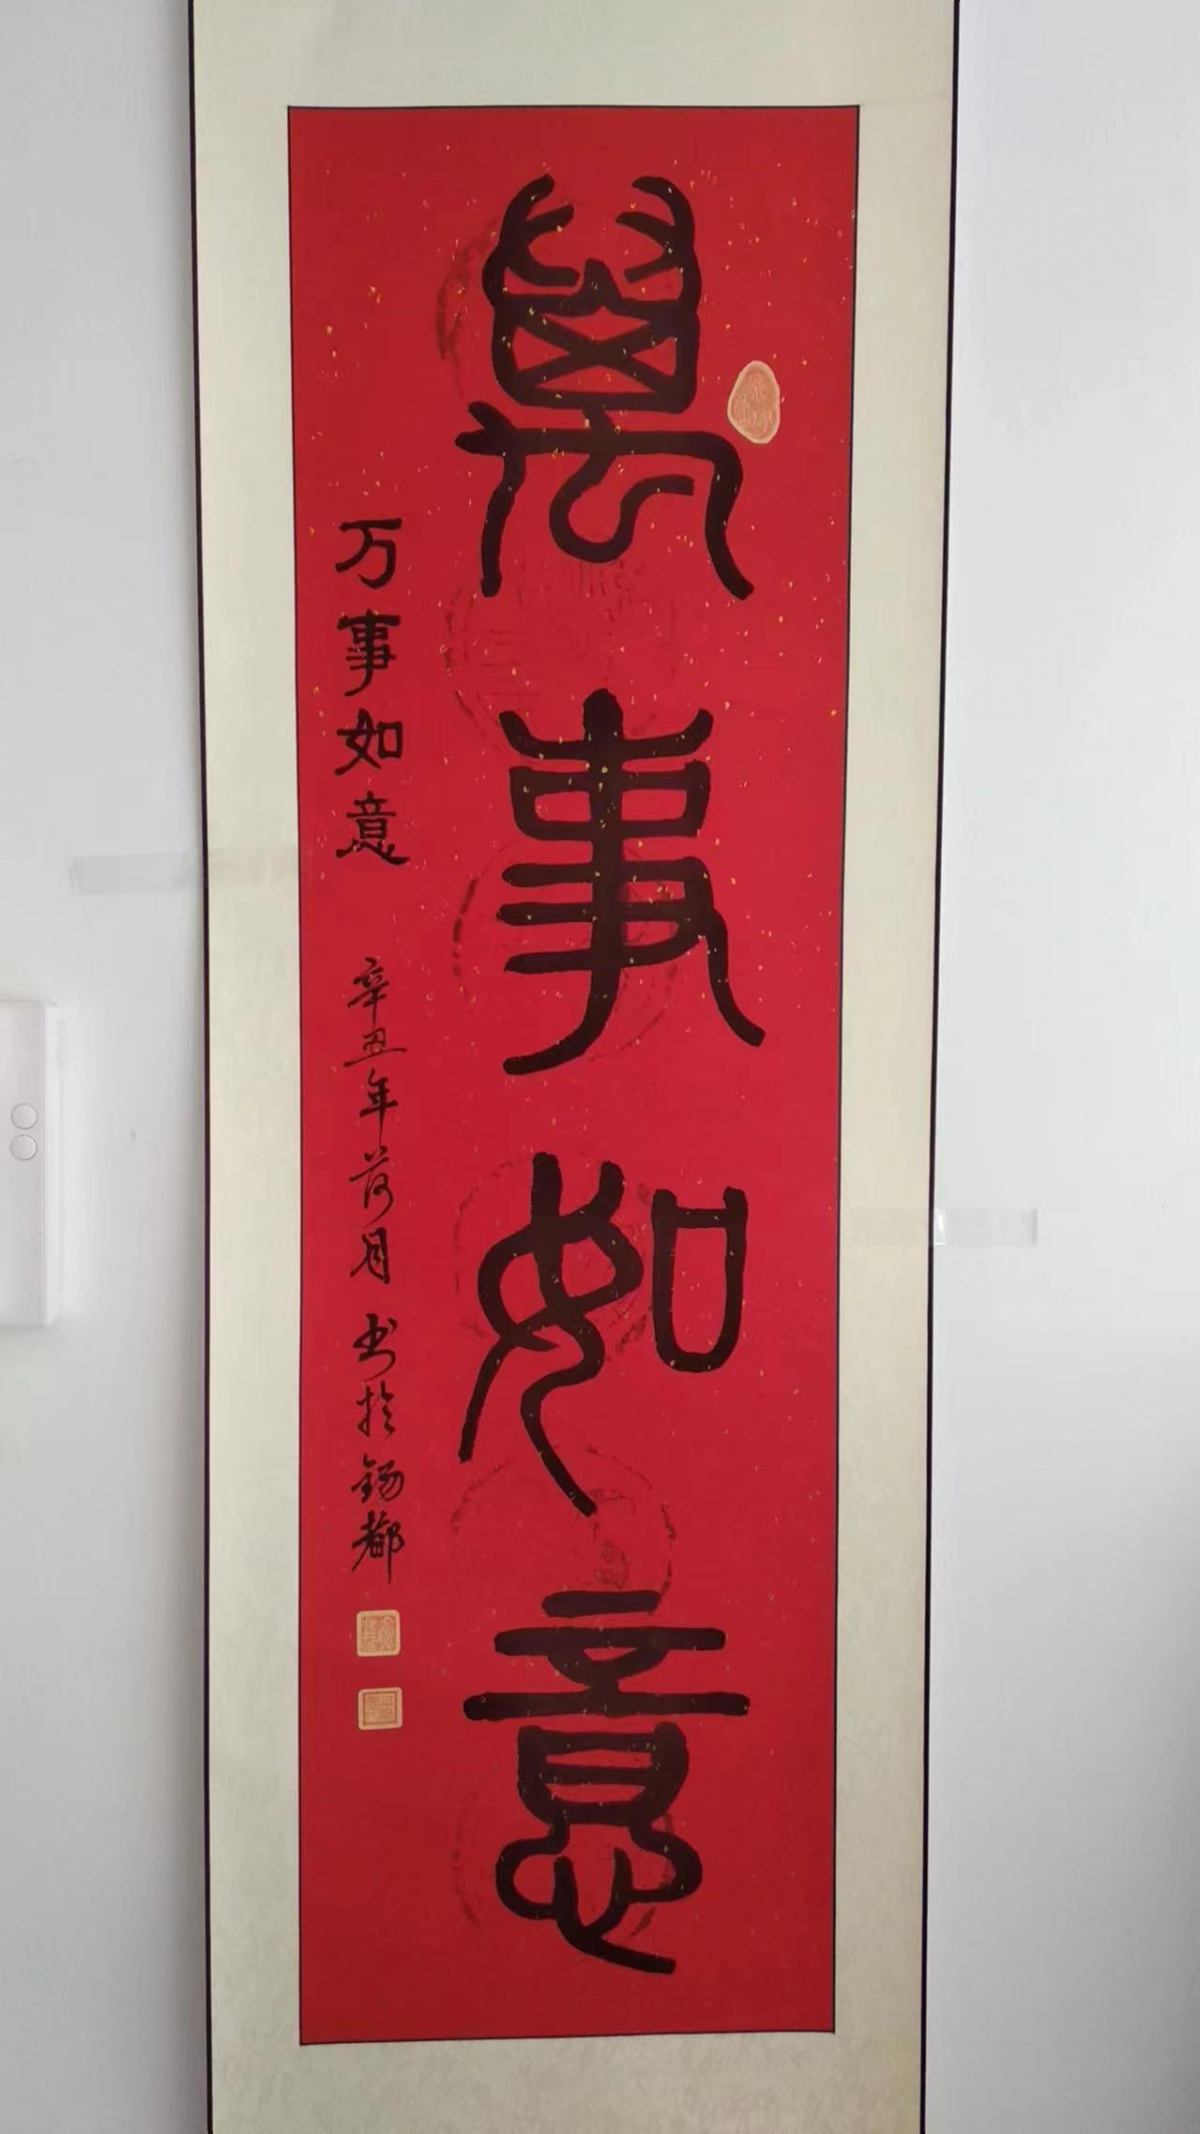 萬事如意
万事如意 辛丑年荷月 书於锡都